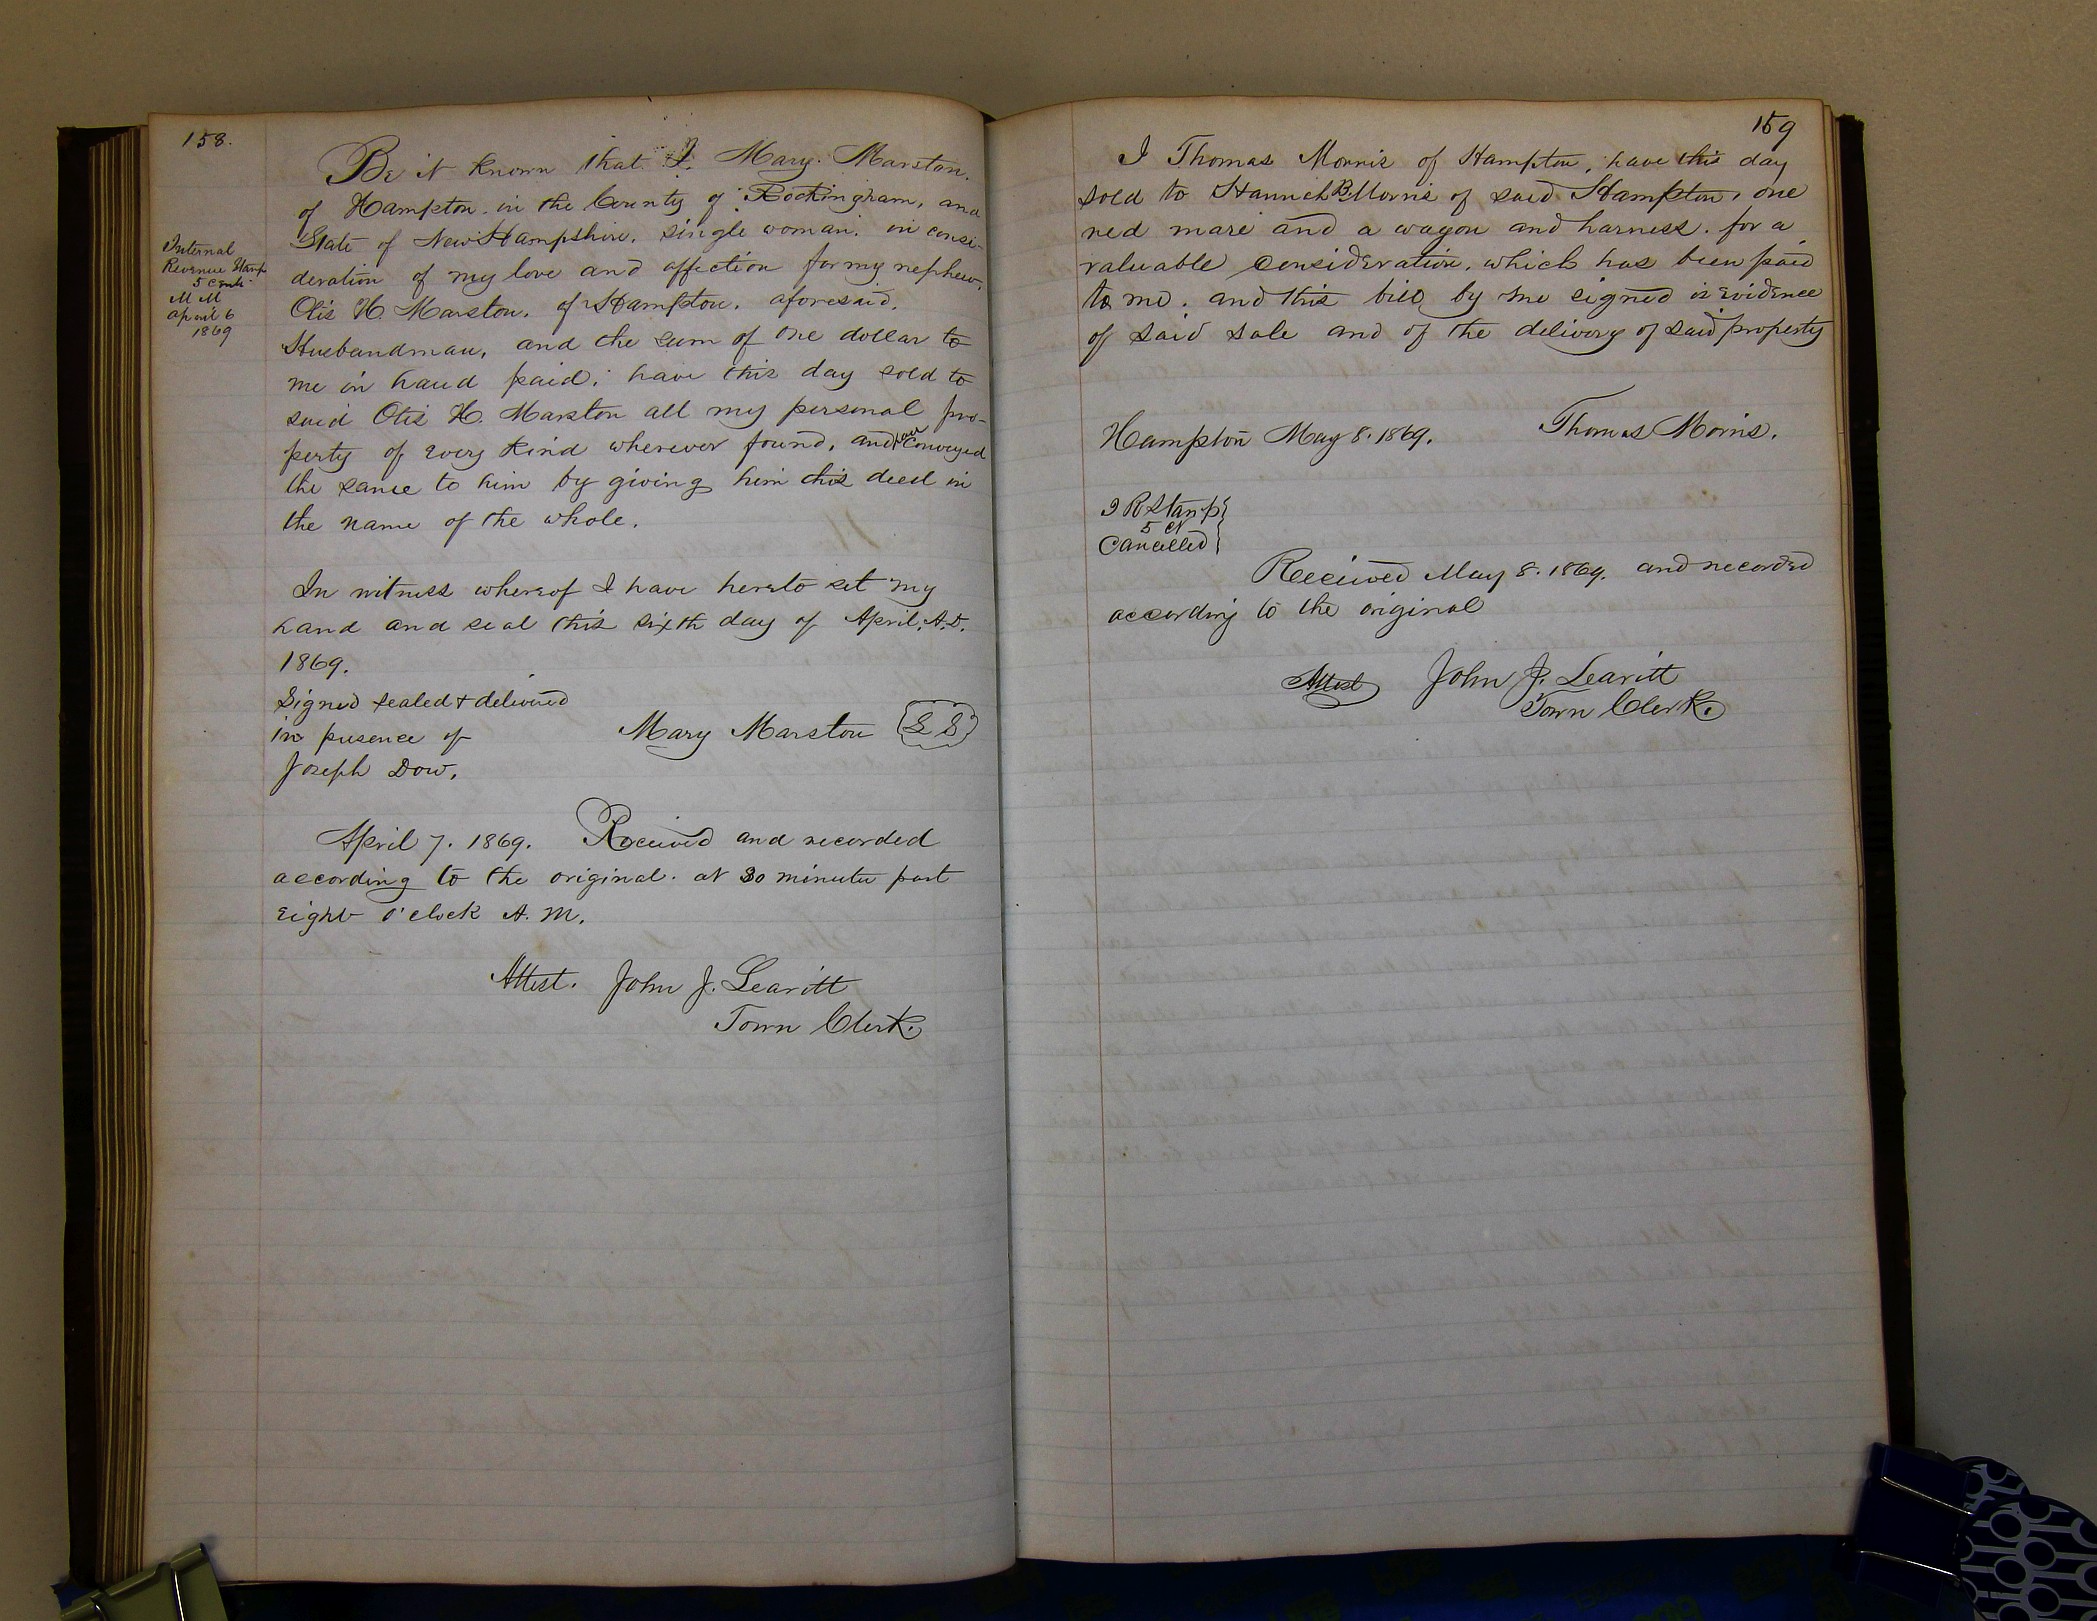 158.
Be it known that I. Mary. Marston.
of Hampton. in the County of Rockingham, and
State of New Hampshire. single woman. in consi-
deration of my love and affection for my nephew,
Otis H. Marston. of Hampton. aforesaid.
Husbandman, and the sum of one dollar to
me in hand paid. have this day sold to
said Otis H. Marston all my personal pro-
perty of every kind wherever found, and have conveyed
the same to him by giving him this deed in
the name of the whole.
Internal
Revenue Stamp
5 cents
M M
April 6
1869
In witness whereof I have hereto set my
hand and seal this sixth day of April. A.D.
1869.
Signed sealed & delivered
in presence of
Joseph Dow.
Mary Marston
L S
April 7. 1869. Received and recorded
according to the original. at 30 minutes past
eight o'clock A. M.
Attest. John J. Leavitt
Town Clerk.
159
I Thomas Morris of Hampton, have this day
sold to Hannah B. Morris of said Hampton, one
red mare and a wagon and harness. for a
valuable consideration. which has been paid
to me. and this bill by me signed is evidence
of said sale and of the delivery of said property
Thomas Morris.
Hampton May 8. 1869.
I R Stamp
5 ct
Cancelled
Received May 8. 1869. and recorded
according to the original
Attest John J. Leavitt
Town Clerk.